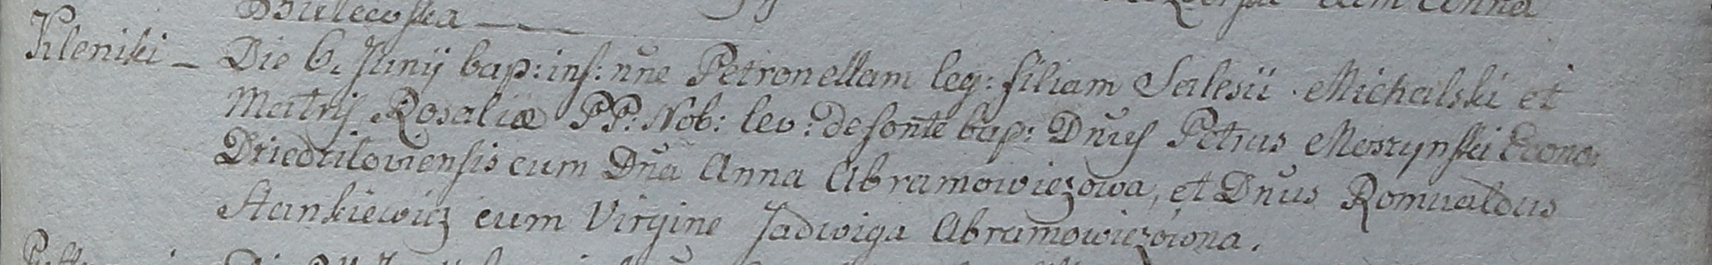 Kleniki – Die 6. Junij bap: inf: nñe Petronellam leg: filiam Salesii Michalski et
Matris Rosaliæ PP: Nob: lev: de fonte bap: Dnus Petrus Moszynski Econo:
Driedzilowiensis cum Dña Anna Abramowiczowa, et Dnus Romualdus
Stankiewicz cum Virgine Jadwiga Abramowiczowna.